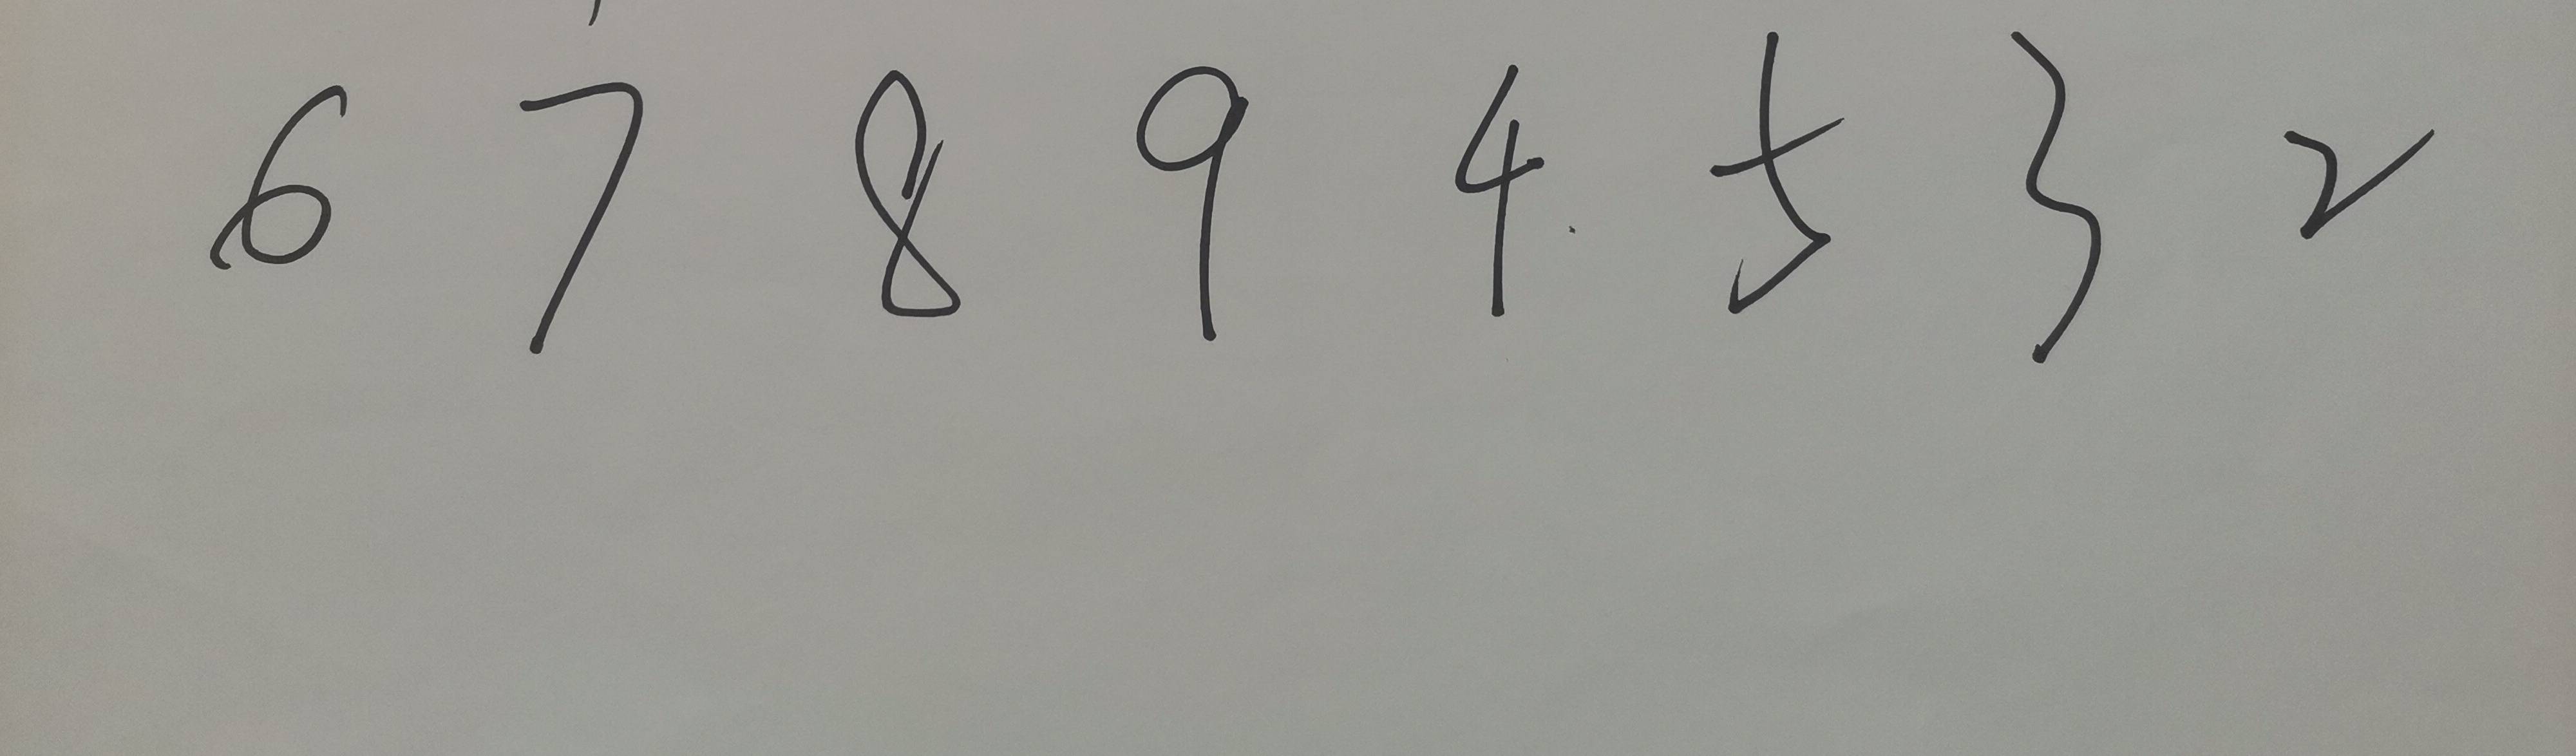 6 7 8 9 4 5 3 2